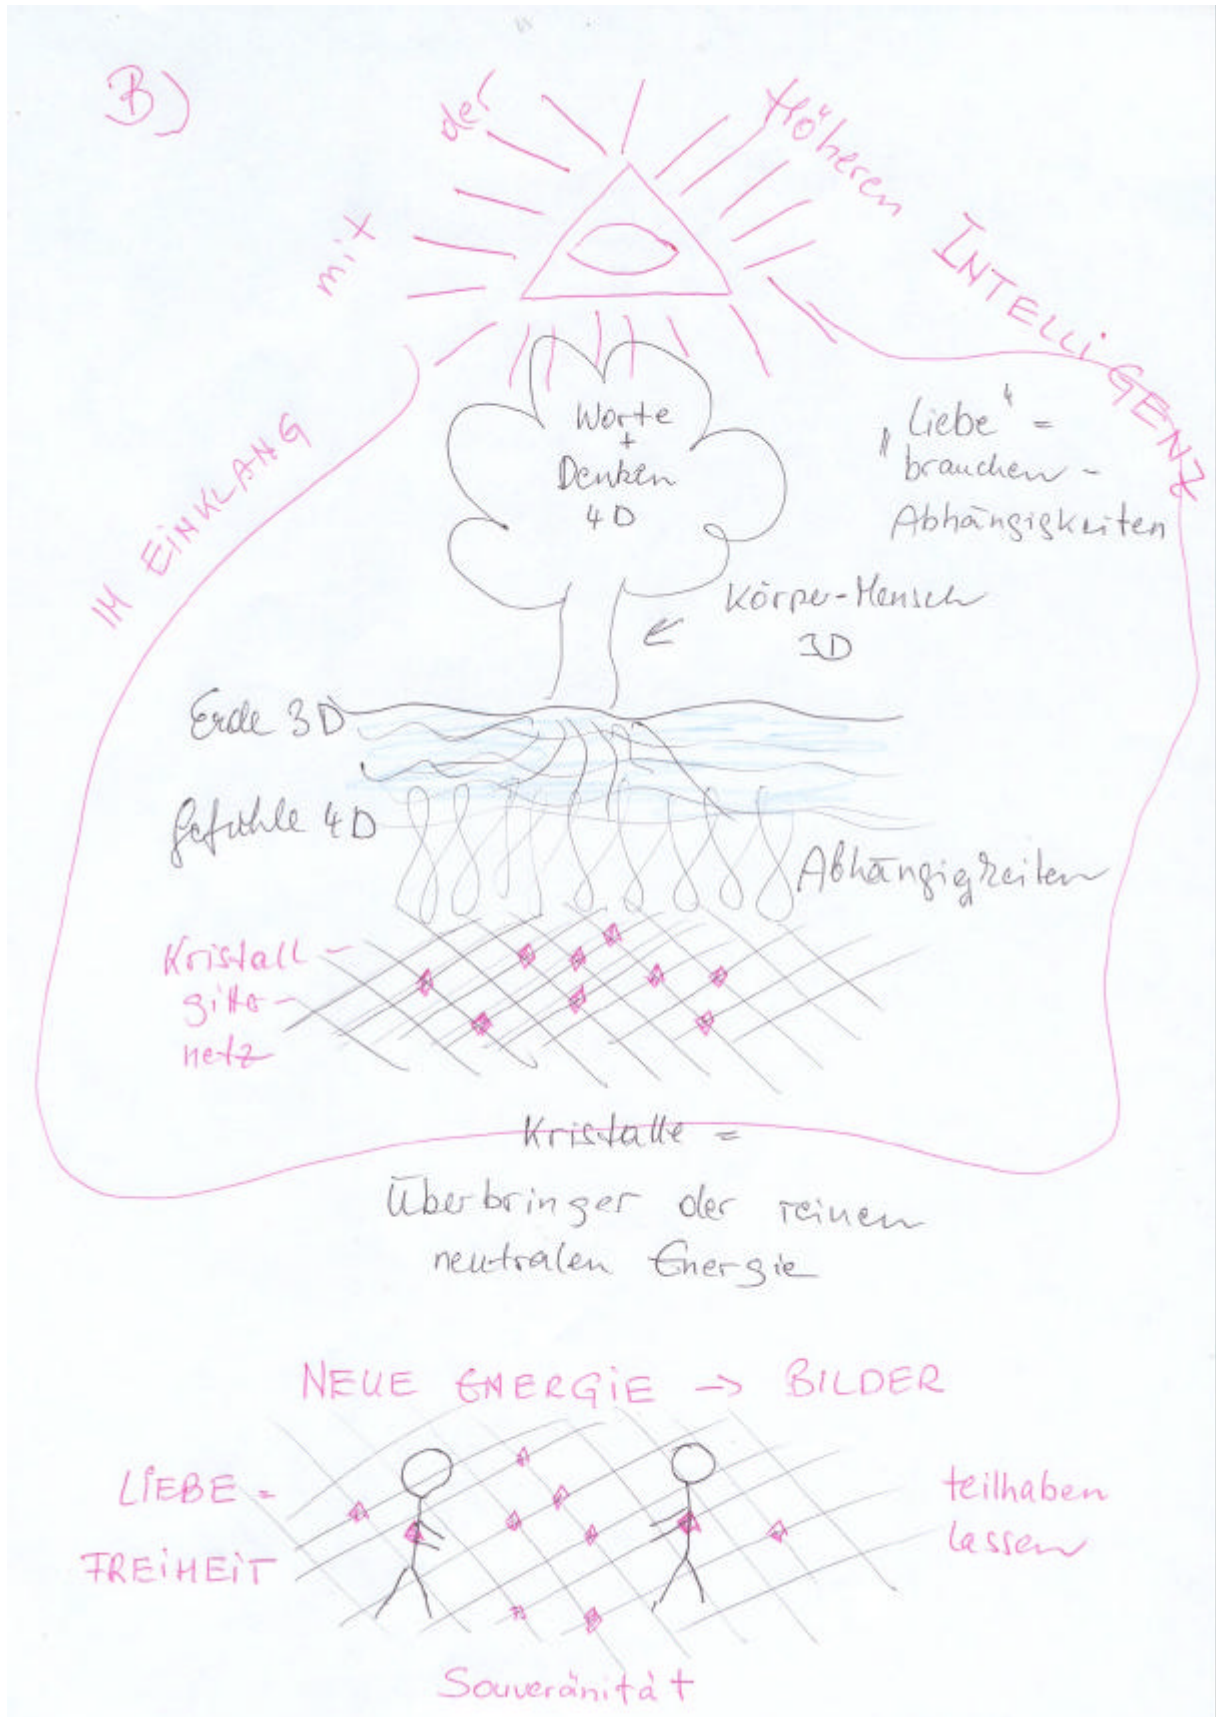 B)
IM EINKLANG mit der Höheren INTELLIGENZ
Worte
+
Denken
4D
"Liebe" =
brauchen -
Abhängigkeiten
Körper-Mensch
3D
Erde 3D
Gefühle 4D
Abhängigkeiten
Kristall-
gitter-
netz
Kristalle =
Überbringer der reinen
neutralen Energie
NEUE ENERGIE → BILDER
LIEBE =
FREIHEIT
teilhaben
lassen
Souveränität